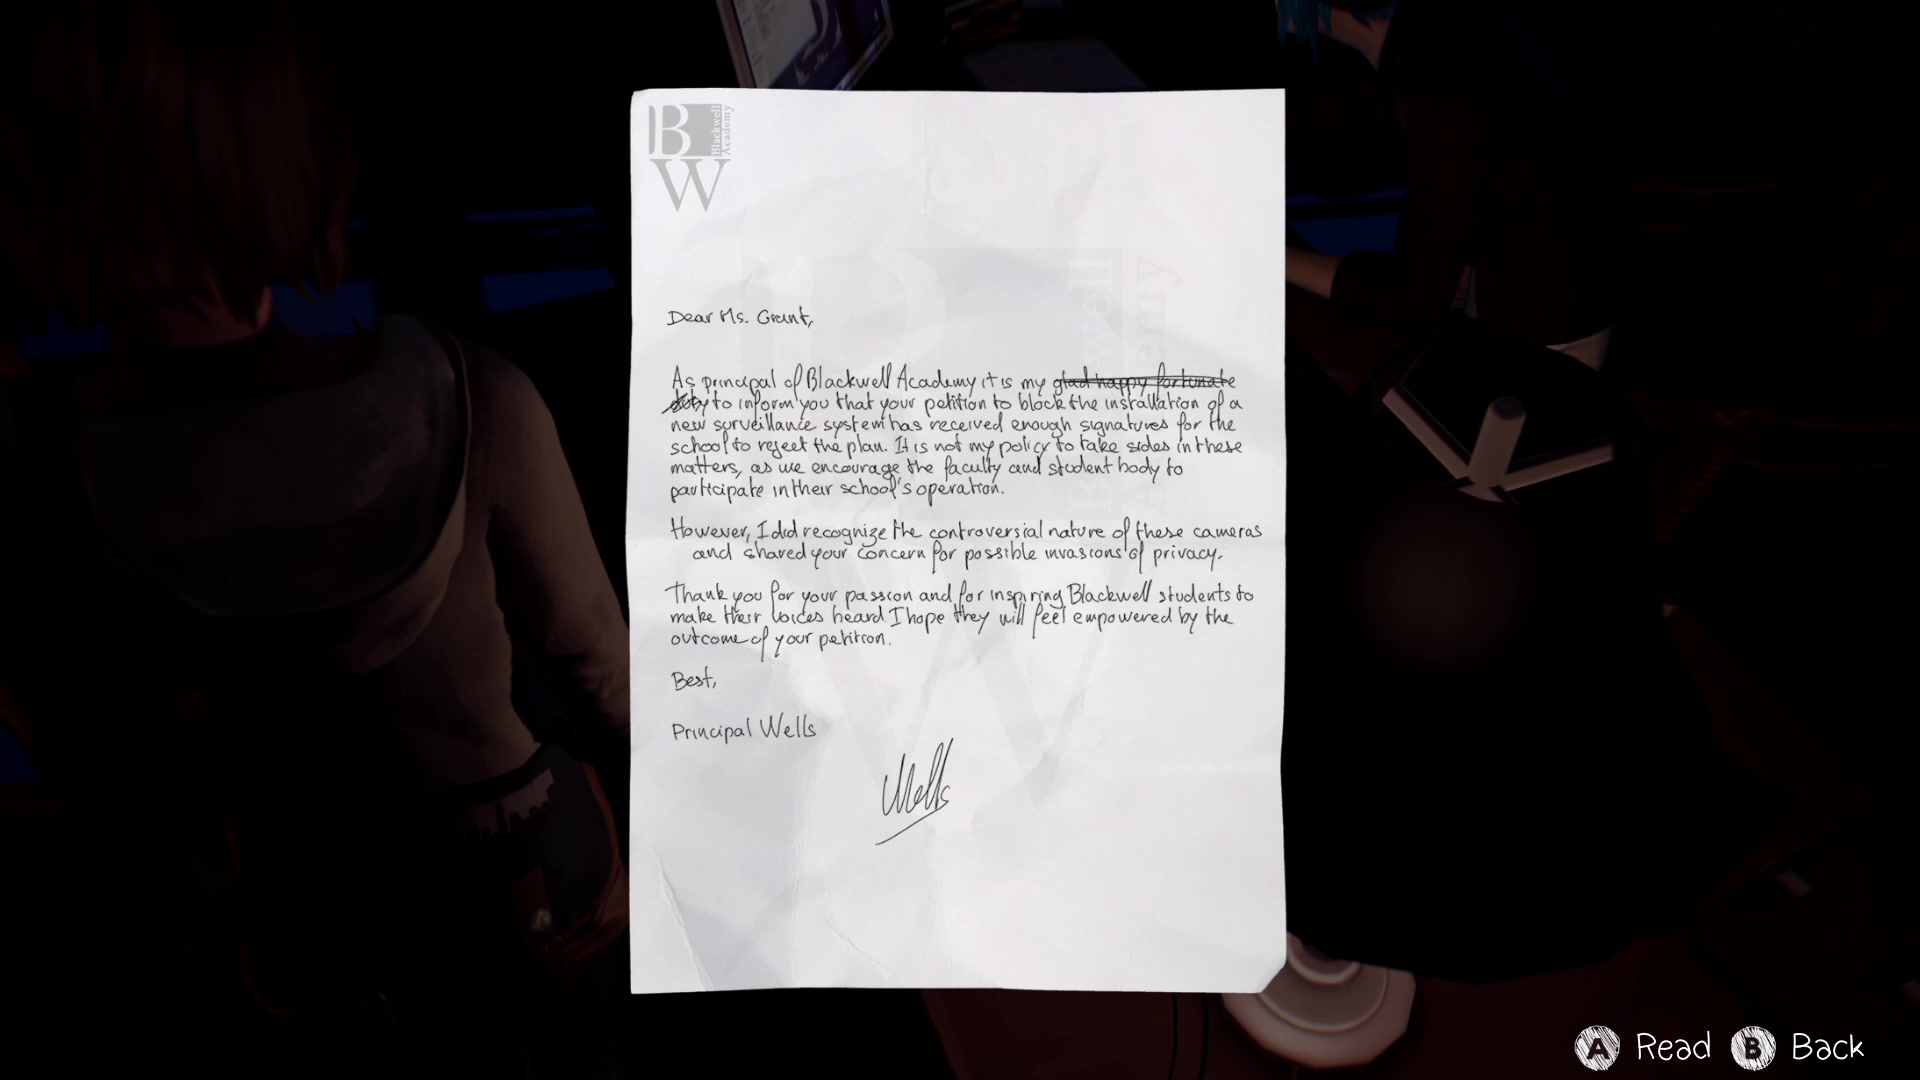 B Blackwell Academy
W
Dear Ms. Grant,
As principal of Blackwell Academy it is my glad happy fortunate
duty to inform you that your petition to block the installation of a
new surveillance system has received enough signatures for the
school to reject the plan. It is not my policy to take sides in these
matters, as we encourage the faculty and student body to
participate in their school's operation.
However, I did recognize the controversial nature of these cameras
and shared your concern for possible invasions of privacy.
Thank you for your passion and for inspiring Blackwell students to
make their voices heard. I hope they will feel empowered by the
outcome of your petition.
Best,
Principal Wells
Wells
A Read B Back